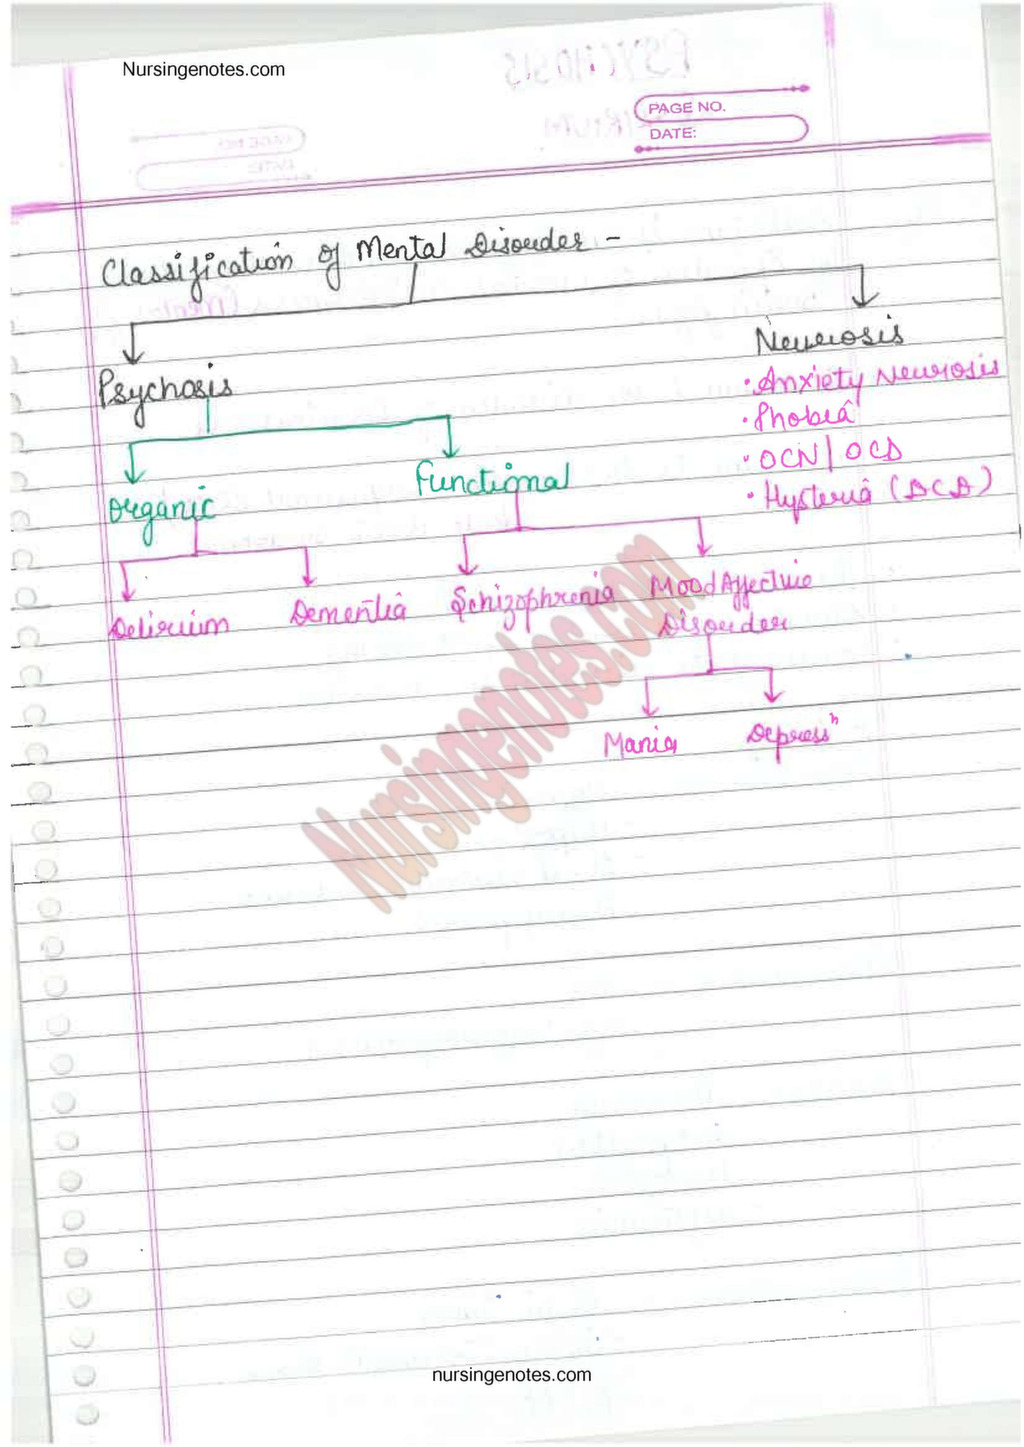 Nursingenotes.com
PAGE NO.
DATE:
Classification of Mental Disorder -
Psychosis
Neurosis
• Anxiety Neurosis
• Phobia
• OCN/OCD
• Hysteria (DCD)
Organic
Functional
Delirium
Dementia
Schizophrenia
Mood Affective
Disorder
Mania
Depressⁿ
Nursingenotes.com
nursingenotes.com